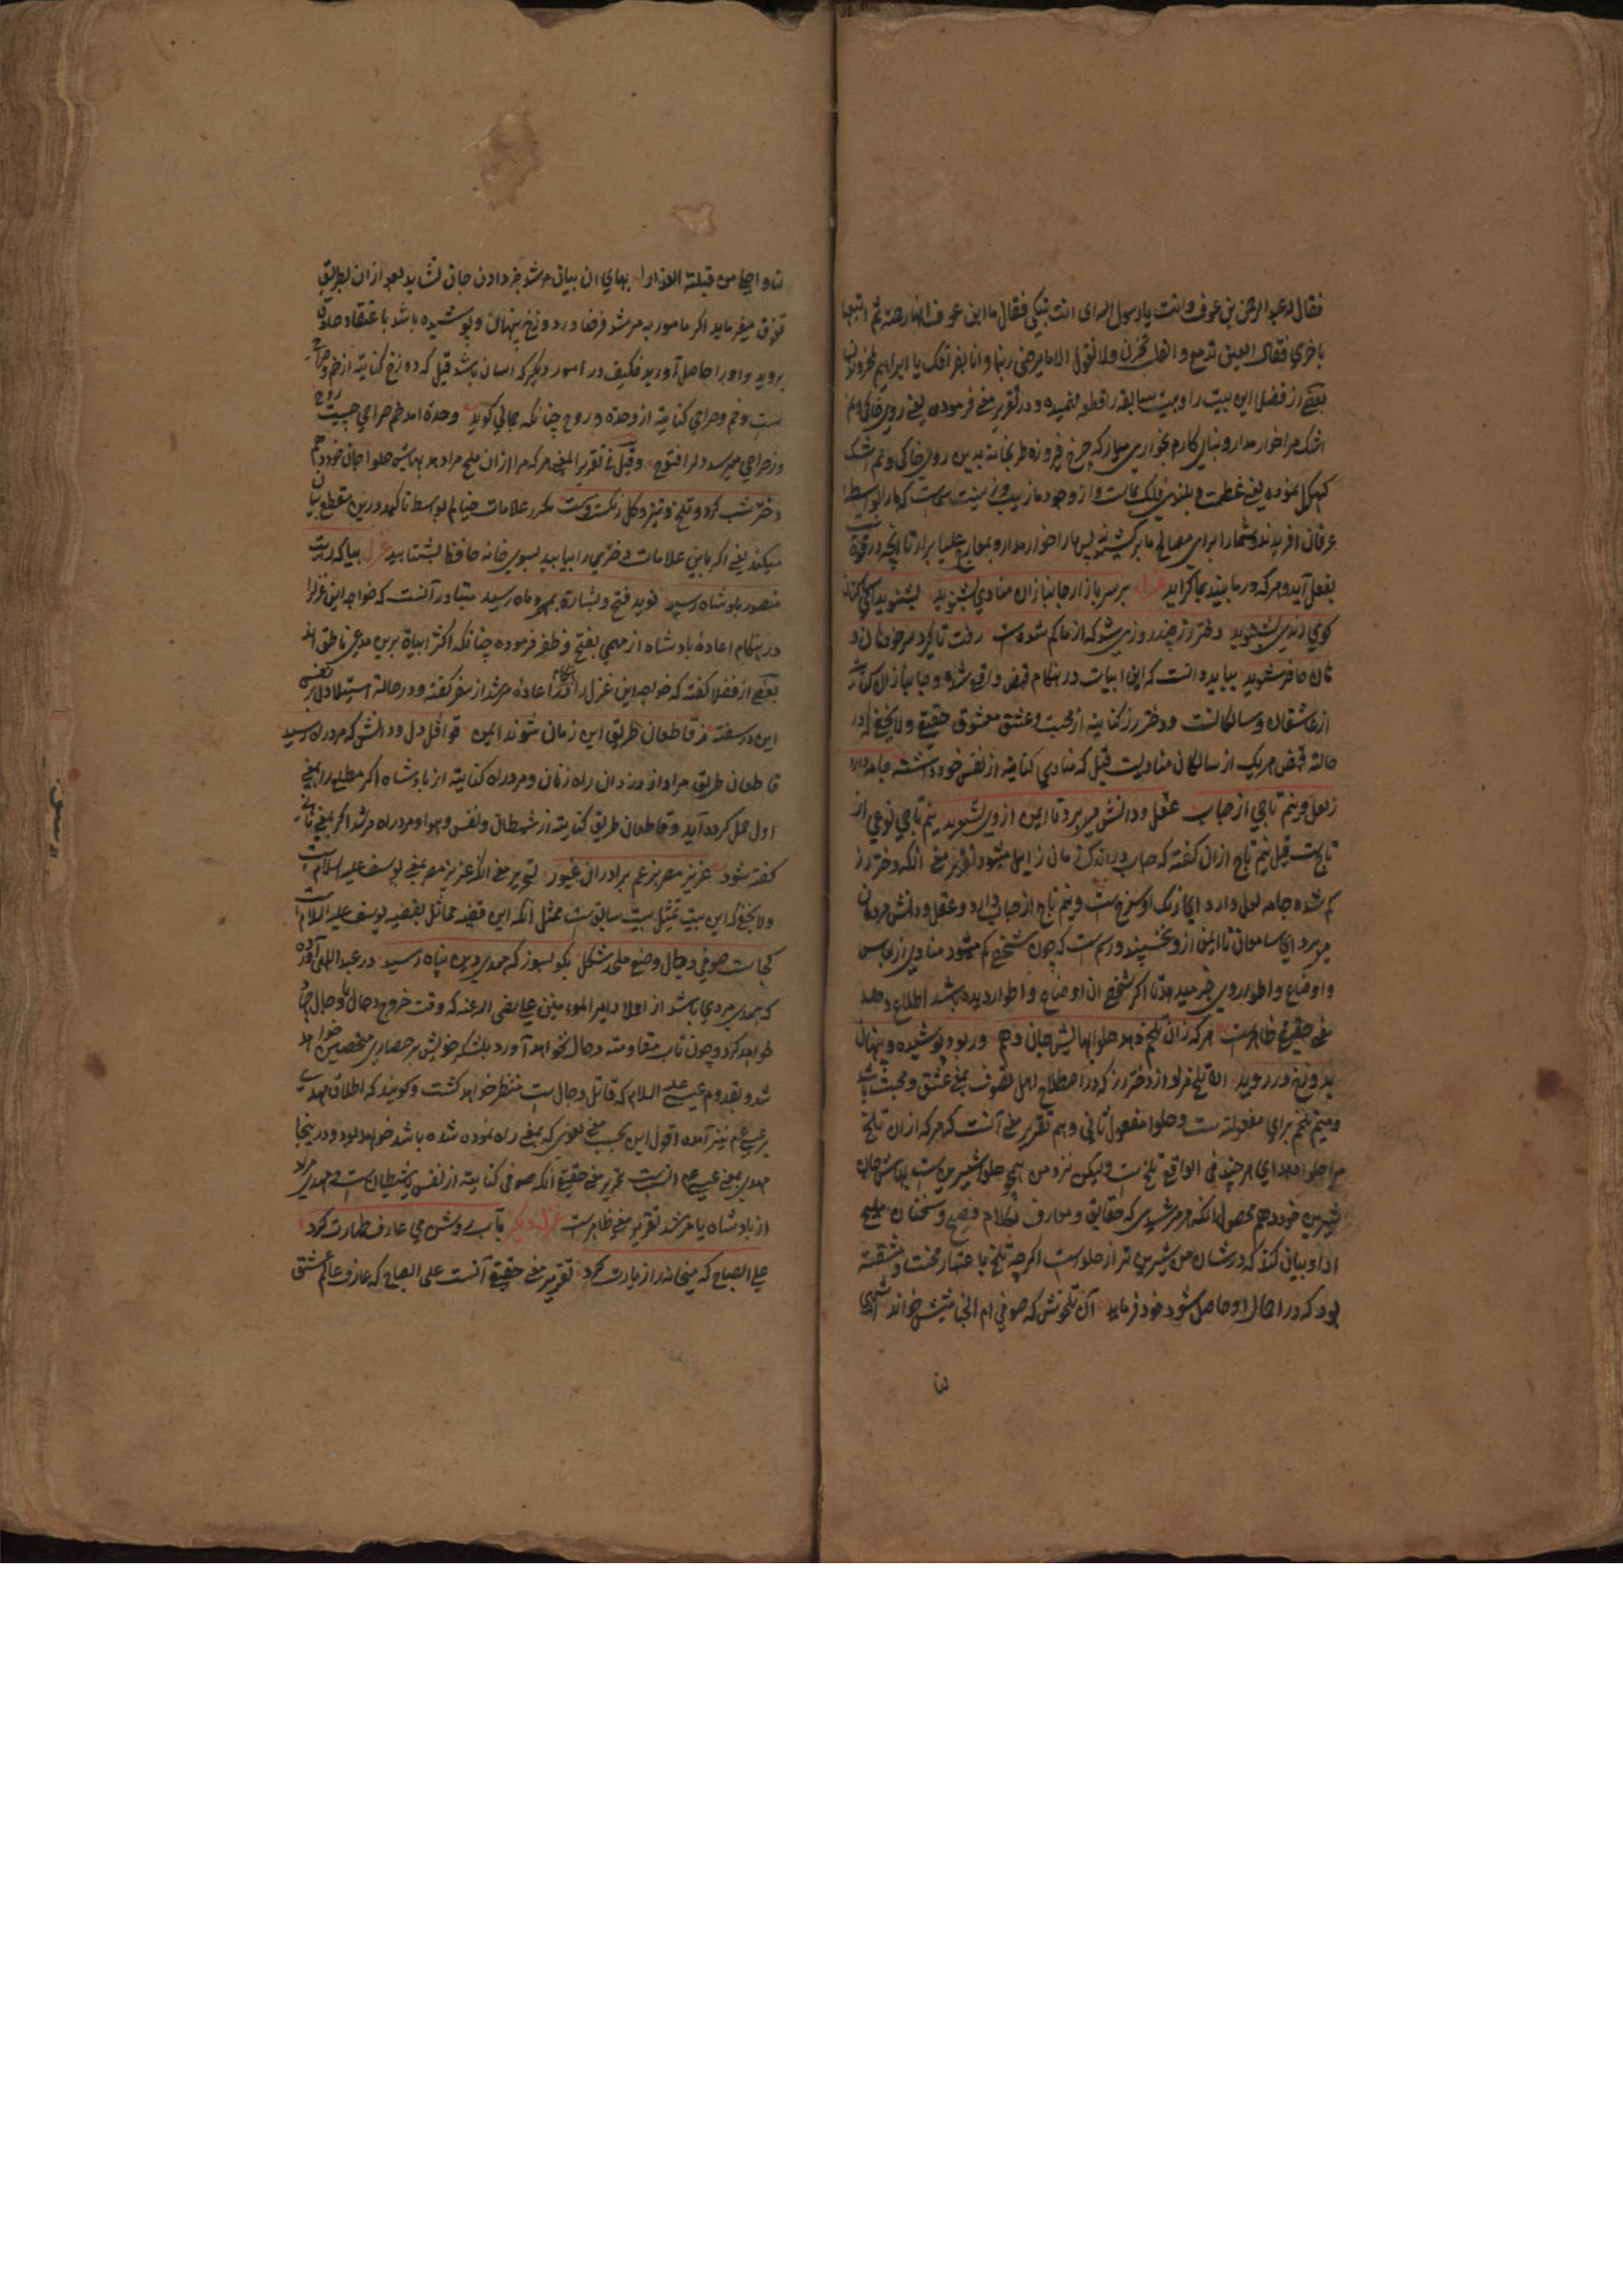 فقال له عبد الرحمن بن عوف وانت یا رسول الله ای انت تبکی فقال یا ابن عوف انها رحمة ثم اتبعها
باخری فقال العین تدمع و القلب یحزن ولا نقول الا ما یرضی ربنا و انا بفراقک یا ابراهیم لمحزونون
بعضے از فضلا این بیت را و بیت سابقه را قطعه فهمیده و در تقریر معنی فرموده یعنی روی خاکی و نم
اشک مرا خوار مدار و بنیان کارم بخواری میاز که چرخ فیروزه طربخانه بدین روی خاکی و نم اشک
کهگل نموده یعنی عظمت و بلندی فلک بماست و از وجود ما زیب و زینت که ما را بواسطه
عرفان آفریدند و شما را برای مصالح ما پس ما را خوار مدار و بمعارج علیا برآر تا آنچه در قوة
بفعل آید و هر که در ما بیند بما گراید غزل بر سر بازار جانبازان منادی بشنوید بشنوید ای ساکنان
کوی رندی بشنوید دختر رز چند روزی شد که از ما گم شده است رفت تا گیرد سر خود هان و
هان حاضر شوید بباید دانست که این ابیات در هنگام قبض واقع شده و جانبازان کنایة
از عاشقان و سالکانست و دختر رز کنایه از محبت و عشق معشوق حقیقے ولا یخفے که در
حالة قبض هر یک از سالکان منادیست قیل که منادی کنایة از نفس خود داشته جامه دارد
ز لعل و نیم تاجی از حباب عقل و دانش میبرد تا ایمن از وی نشنوید نیم تاجی نوعی از
تاج است قیل نیم تاج ازان گفته که حباب در اندک زمان زایل میشود تقریر معنے آنکه دختر رز
گم شده جامه لعل دارد ای رنگ او سرخ است و نیم تاج از حباب دارد و عقل و دانش مردمان
میبرد ای سامعان تا ایمن ازو نخسپید و رسم است که چون شخصے گم میشود منادی از لباس
و اوضاع و اطوار وی خبر میدهد تا اگر شخصے آن اوضاع و اطوار دیده باشد اطلاع دهد
معنے حقیقے ظاهر است هر که زان تلخم دهد حلوا بهایش جان دهم ور بود پوشیده و پنهان
بدوزخ در روید ازان تلخ مراد از دختر رز که در اصطلاح اهل تصوف بمعنے عشق و محبت باشد
و میم تلخم برای مفعولیت است و حلوا مفعول ثانی و هم تقریر معنے آنست که هر که ازان تلخ
مرا حلوا دهد ای هر چند فی الواقع تلخ است ولیکن نزد من همچو حلوا شیرین است بهایش جان
شیرین خود دهم محصول آنکه هر مرشدی که حقایق و معارف بکلام فصیح و سخنان ملیح
ادا و بیان کند که در شان من شیرین تر از حلواست اگرچه تلخ باعتبار محنت و مشقت
بود که در اعمال او حاصل شود خود فرماید آن تلخوش که صوفی ام الخبائثش خواند اشهی
لنا و احلی من قبلة العذارا بهای آن بیان مرشد جز دادن جان نشاید بعد ازان بطریق
ترقی میفرماید اگر مامور به مرشد فرضا در دوزخ پنهان و پوشیده باشد باعتقاد حلاوة
بروید و او را حاصل آورید فکیف در امور دیگر که آسان باشد قیل که دوزخ کنایة از خم و صراحی
است و خم و صراحی کنایة از وحدة و روح چنانکه جمالی گوید وحدة آمد خم صراحی چیست روح
وز صراحی میرسد دلرا فتوح و قیل فی تقریر المعنے هر که مرا ازان ملیح مراد دهد بهایش حلوا جان خود دهم
دختر شب گرد و تلخ و تیز و گلرنگ است و مست مکرر علامات خیالم بواسطه تاکید در این مقطع بیان
میکند یعنی اگر باین علامات دختری را بیابید بسوی خانه حافظ بشتابید غزل بیا که رایت
منصور بادشاه رسید نوید فتح و بشارة بمهر و ماه رسید متبادر آنست که خواجه این غزل را
در هنگام اعادهٔ بادشاه از مهمی بفتح و ظفر فرموده چنانکه اکثر ابیاة برین مدعی ناطق اند
بعضے از فضلا گفته که خواجه این غزل را در هنگام اعادهٔ مرشد از سفر گفته و در حالة استیلا دل بر نفس
این در سفته ز قاطعان طریق این زمان شوند ایمن قوافل دل و دانش که مرد راه رسید
قاطعان طریق مراد از دزدان راه زنان و مرد راه کنایة از بادشاه اگر مطلع را بمعنے
اول حمل کرده آید و قاطعان طریق کنایة از شیطان و نفس و هوا و مرد راه مرشد اگر بمعنے ثانی
گفته شود عزیز مصر برغم برادران غیور تقریر معنے آنکه عزیز مصر یعنے یوسف علیه السلام است
ولا یخفے که این بیت تمثیل بیت سابق است ممثل آنکه این قضیه مماثل بقضیه یوسف علیه السلام است
کجاست صوفی دجال وضع ملحد شکل بگو بسوز که مهدی دین پناه رسید در عبد اللهی آورده
که مهدی مردی باشد از اولاد امیر المومنین علی رضی الله عنه که وقت خروج دجال با دجال جهاد
خواهد کرد و چون تاب مقاومت دجال نخواهد آورد با لشکر خویش بر حصاری متحصن خواهد
شد و بقدوم عیسے علیه السلام که قاتل دجال است منتظر خواهد گشت و گویند که اطلاق مهدی
بر عیسے هم نیز آمده اقول این بحسب معنے لغوی که بمعنے راه نموده شده باشد خواهد بود و درینجا
مهدی بمعنے عیسے هم انسب است تقریر معنے حقیقے آنکه صوفی کنایة از نفس یا شیطان است و مهدی مراد
از بادشاه یا مرشد تقریر معنے ظاهر است غزل دیگر بآب روشن می عارف طهارت کرد
علی الصباح که میخانه را زیارت کرد تقریر معنے حقیقے آنست علی الصباح که عارف عالم عشق